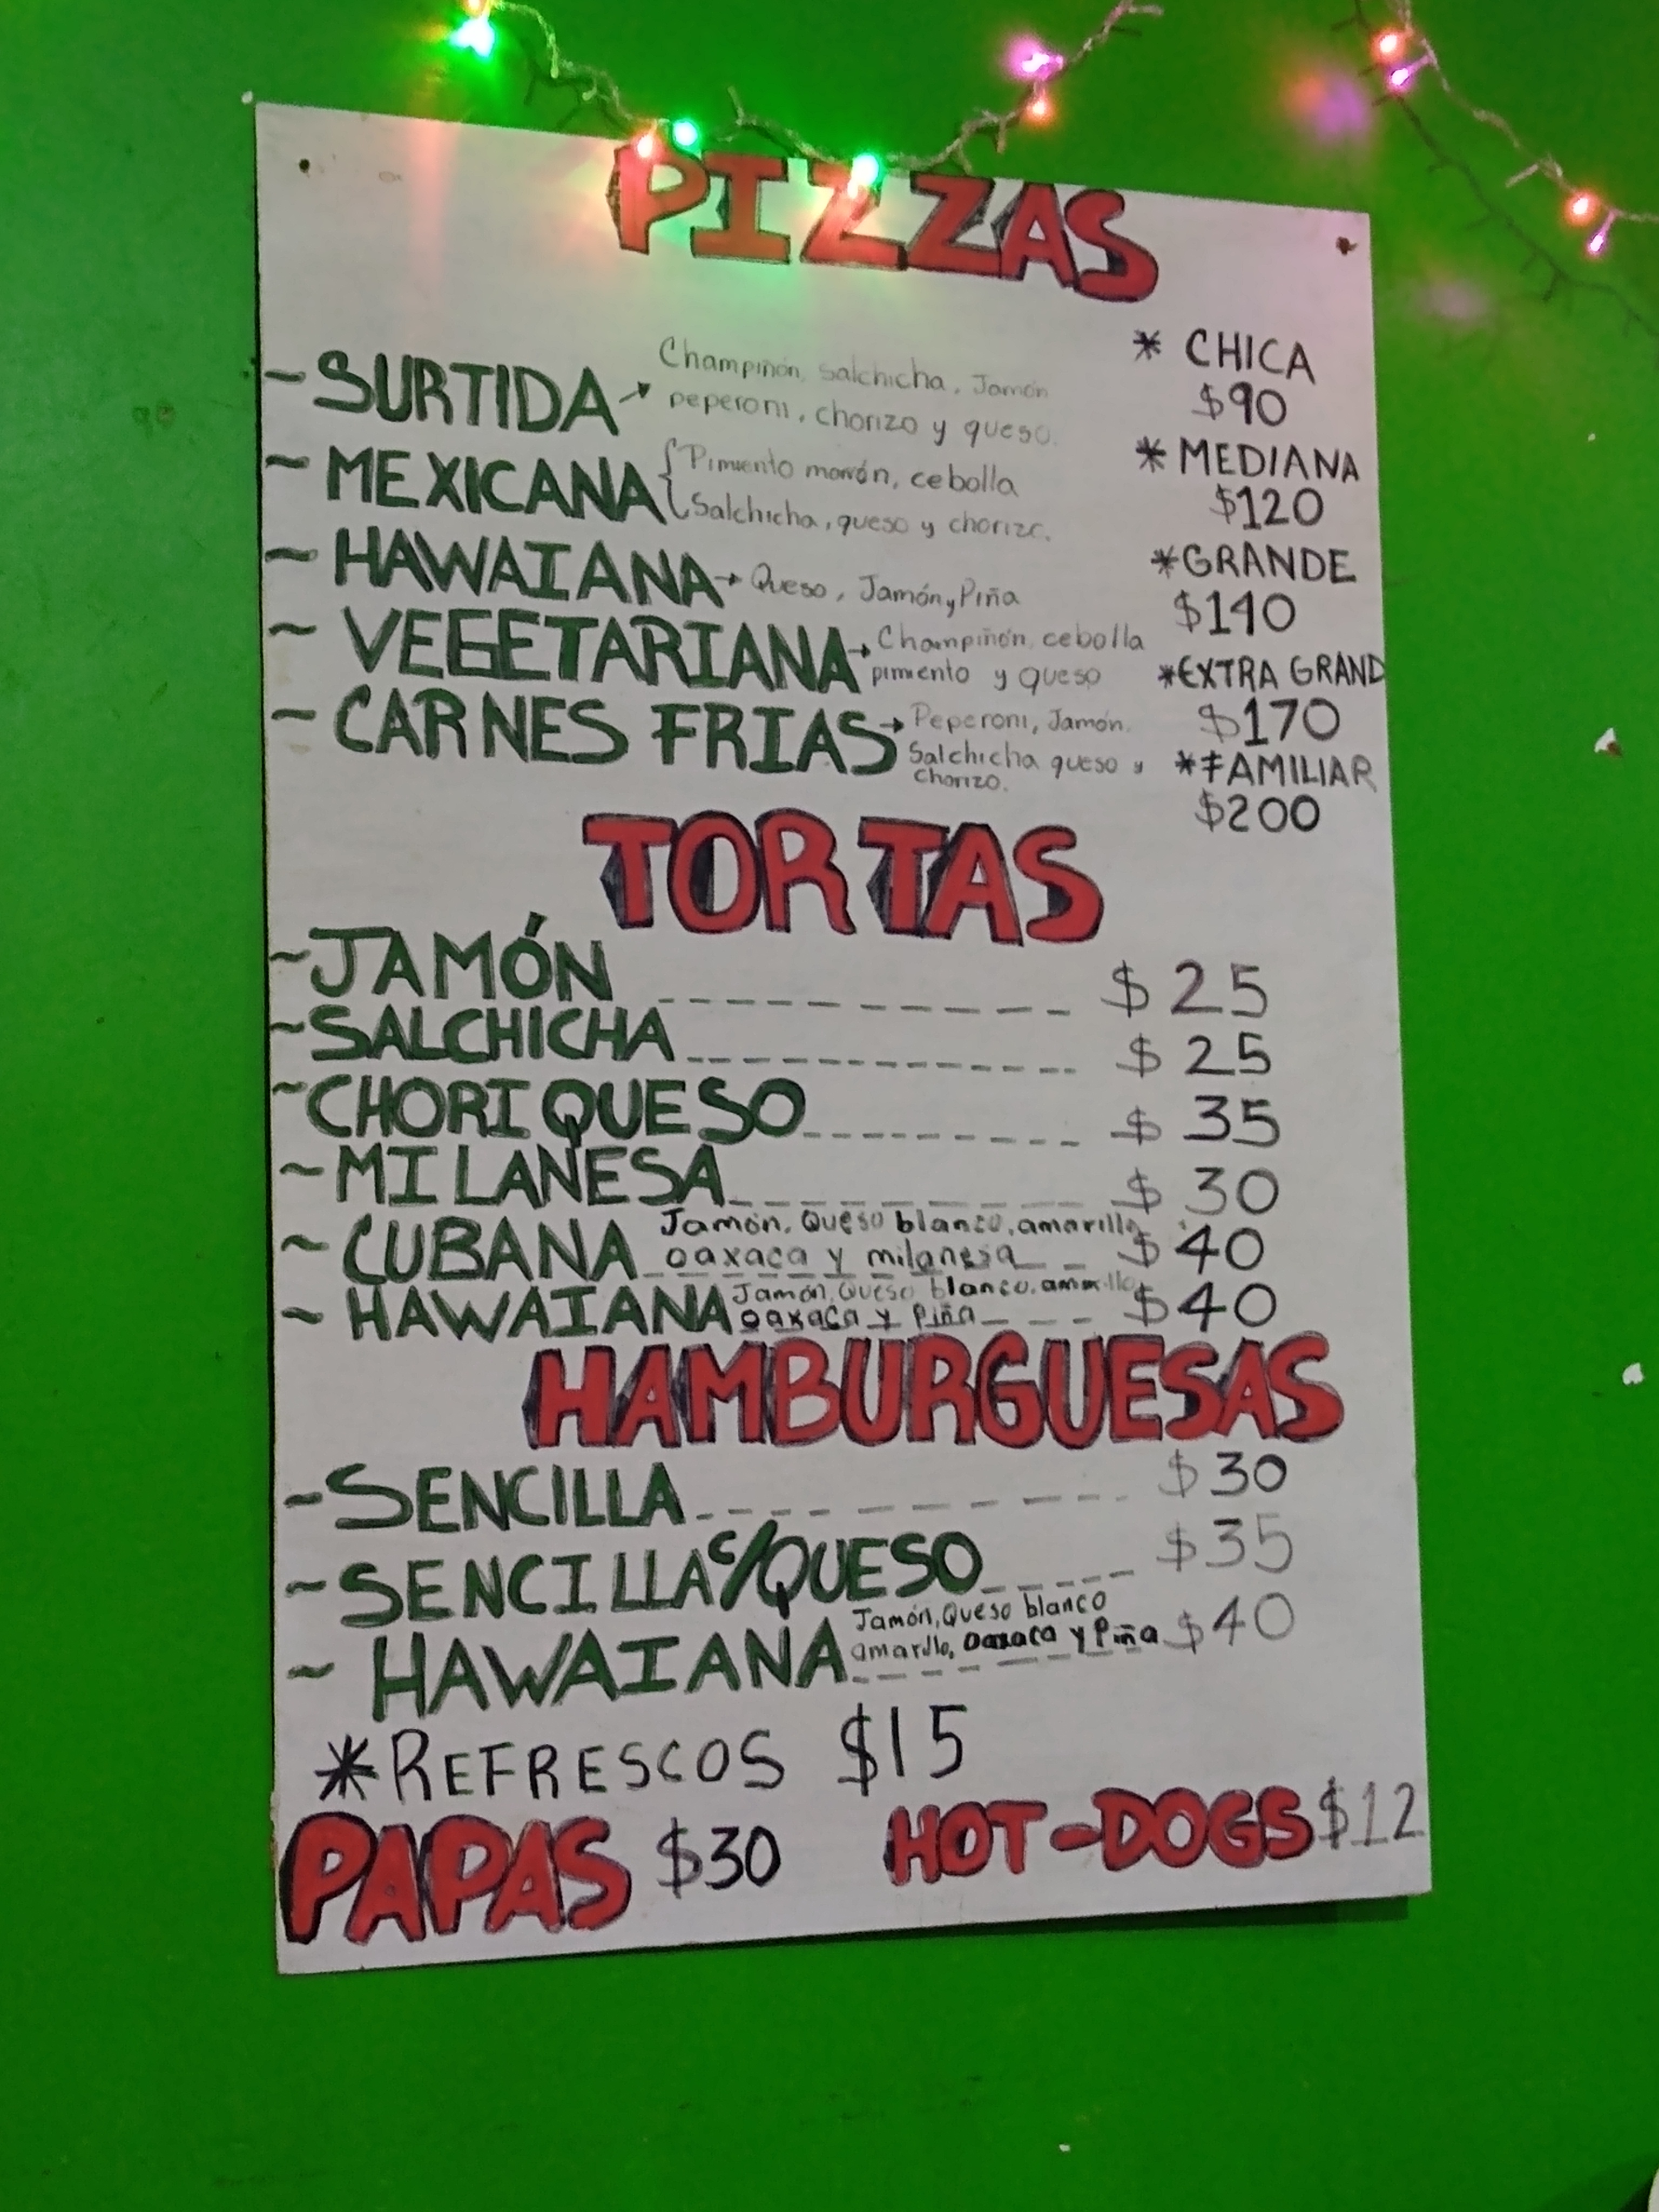 PIZZAS
~ SURTIDA → Champiñón, Salchicha, Jamón
peperoni, chorizo y queso.
~ MEXICANA { Pimiento morrón, cebolla
Salchicha, queso y chorizo.
~ HAWAIANA → Queso, Jamón y Piña
~ VEGETARIANA → Champiñón, cebolla
pimiento y queso
~ CARNES FRIAS → Peperoni, Jamón,
Salchicha queso y
chorizo.
* CHICA
$90
* MEDIANA
$120
* GRANDE
$140
* EXTRA GRAND
$170
* FAMILIAR
$200
TORTAS
~ JAMÓN $25
~ SALCHICHA $25
~ CHORIQUESO $35
~ MILANESA $30
~ CUBANA Jamón, Queso blanco, amarillo
oaxaca y milanesa $40
~ HAWAIANA Jamón, Queso blanco, amarillo
oaxaca y Piña $40
HAMBURGUESAS
~ SENCILLA $30
~ SENCILLA C/QUESO $35
~ HAWAIANA Jamón, Queso blanco
amarillo, Oaxaca y Piña $40
* REFRESCOS $15
PAPAS $30 HOT-DOGS $12